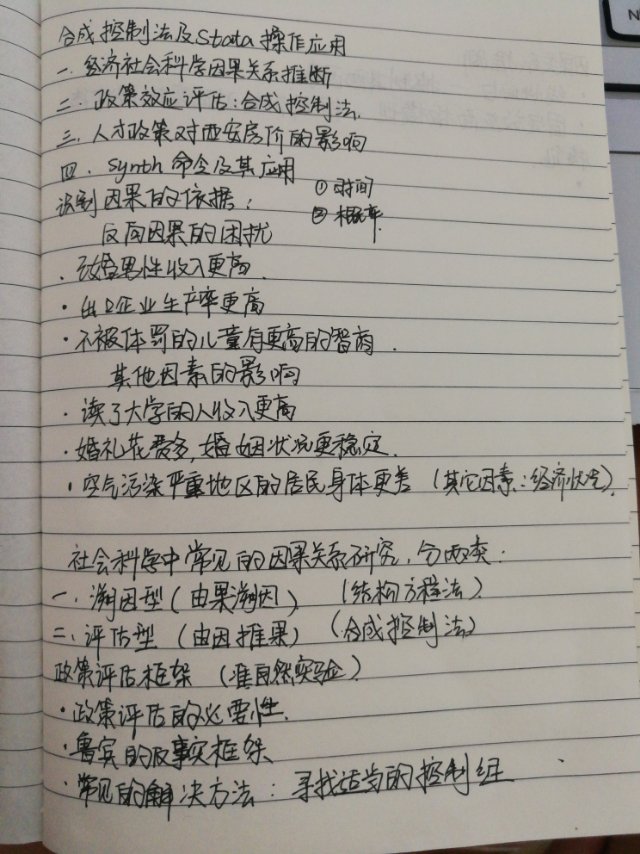 合成控制法及Stata操作应用
一. 经济社会科学因果关系推断
二. 政策效应评估:合成控制法.
三. 人才政策对西安房价的影响
四. synth命令及其应用
识别因果的依据: ①时间
反向因果的困扰 ②概率.
·已婚男性收入更高.
·出口企业生产率更高
·不被体罚的儿童有更高的智商.
其他因素的影响
·读了大学的人收入更高
·婚礼花费多,婚姻状况更稳定.
·空气污染严重地区的居民身体更差(其它因素:经济状况).
社会科学中常见的因果关系研究,分两类:
一. 溯因型(由果溯因) (结构方程法)
二. 评估型(由因推果) (合成控制法)
政策评估框架(准自然实验)
·政策评估的必要性.
·鲁宾的反事实框架
·常见的解决方法:寻找适当的控制组